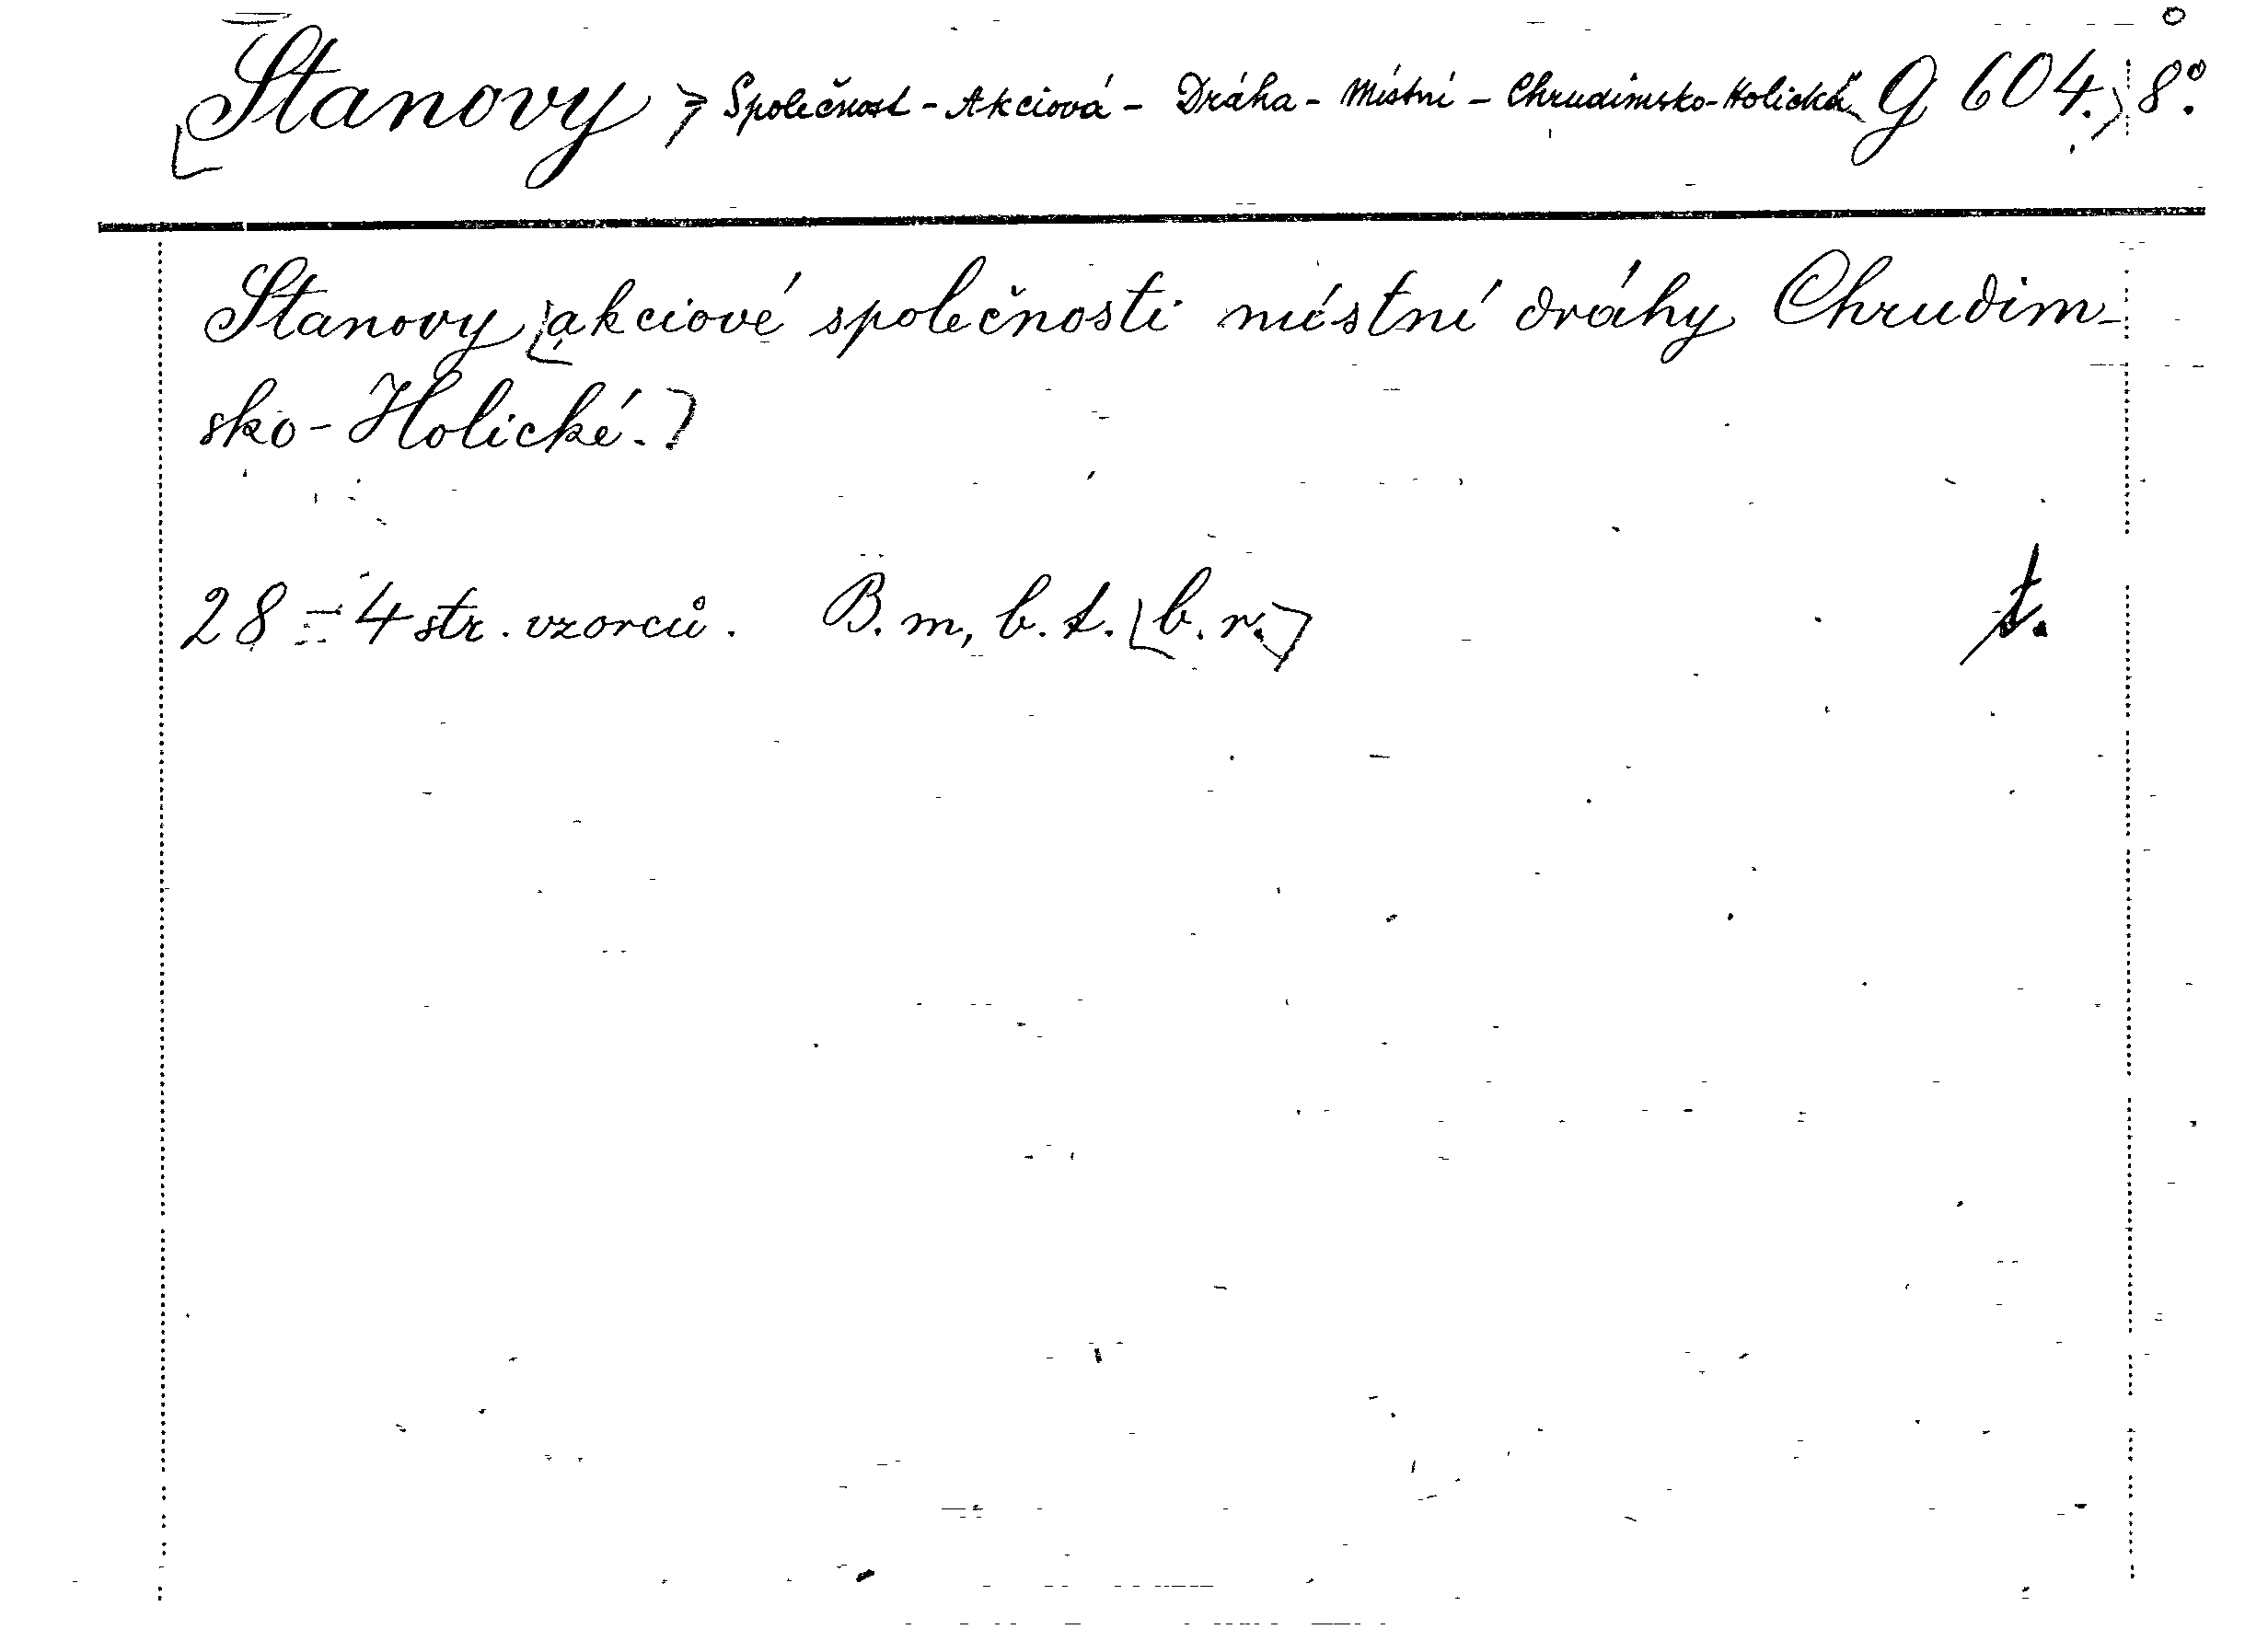 Stanovy Společnost - Akciová - Dráha - Místní - Chrudimsko-Holická G 604. 8°.
Stanovy akciové společnosti místní dráhy Chrudim-
sko-Holické.
28 - 4 str. vzorců. B. m, b. t. b. r.